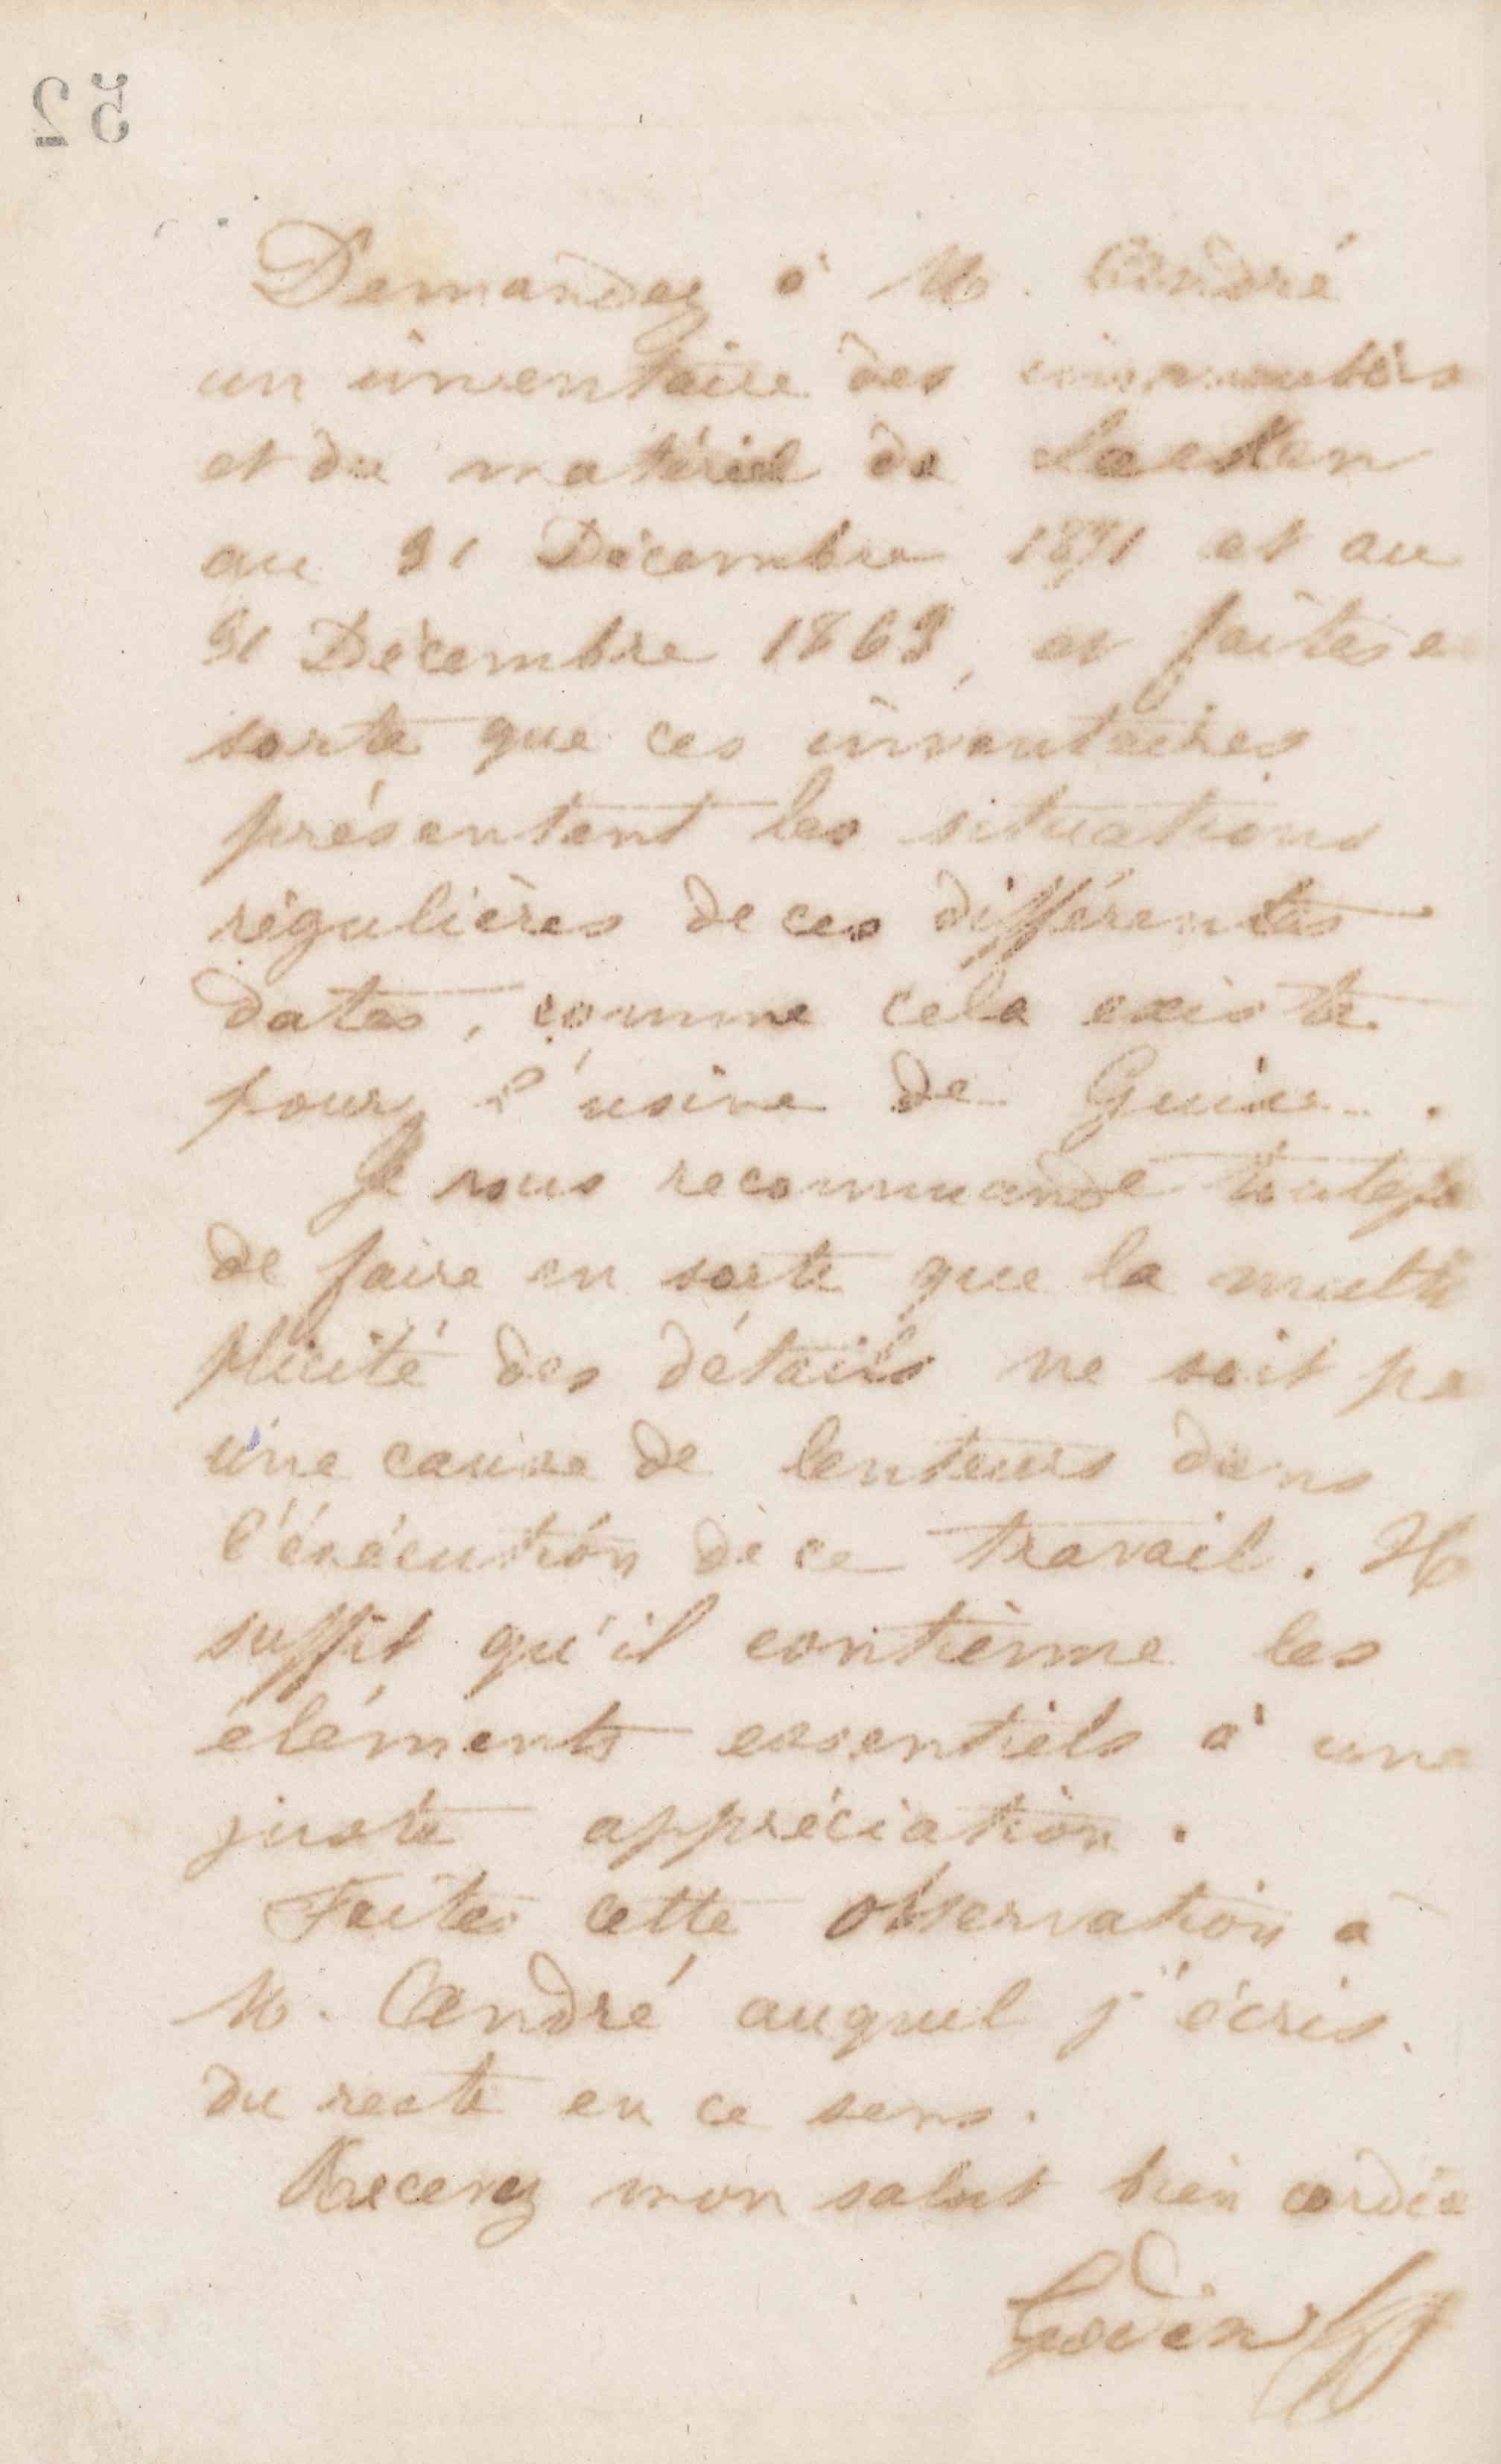 52
Demandez à M. André
un inventaire des immeubles
et du matériel de Laeken
au 31 Décembre 1871 et au
31 Décembre 1863, et faites e
sorte que ces inventaires
présentent les situations
régulières de ces différentes
dates, comme cela existe
pour l'usine de Guise.
Je vous recommande toutefo
de faire en sorte que la multi
plicité des détails ne soit pa
une cause de lenteurs dans
l'éxécution de ce travail. Il
suffit qu'il contienne les
éléments essentiels à une
juste appréciation.
Faites cette observation à
M. André auquel j'écris
du reste en ce sens.
Recevez mon salut bien cordia
Godin